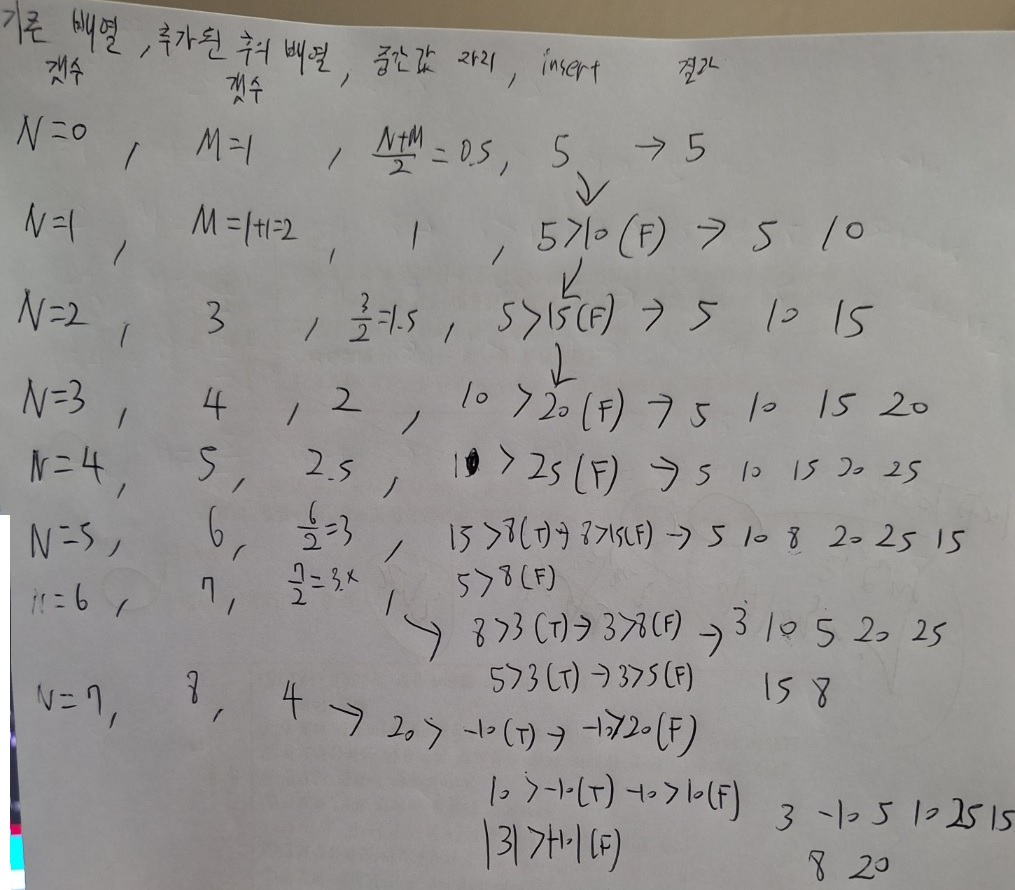 기존 배열, 추가된 후의 배열, 중간값 자리, insert 결과
갯수 갯수
N=0, M=1, N+M/2=0.5, 5 → 5
N=1, M=1+1=2, 1, 5>10(F) → 5 10
N=2, 3, 3/2=1.5, 5>15(F) → 5 10 15
N=3, 4, 2, 10>20(F) → 5 10 15 20
N=4, 5, 2.5, 10>25(F) → 5 10 15 20 25
N=5, 6, 6/2=3, 15>8(T)→8>15(F) → 5 10 8 20 25 15
5>8(F)
N=6, 7, 7/2=3.x, → 8>3(T)→3>8(F) → 3 10 5 20 25
5>3(T)→3>5(F) 15 8
N=7, 8, 4 → 20>-10(T)→-10>20(F)
10>-10(T) -10>10(F) 3 -10 5 10 25 15
|3|>|-10|(F) 8 20